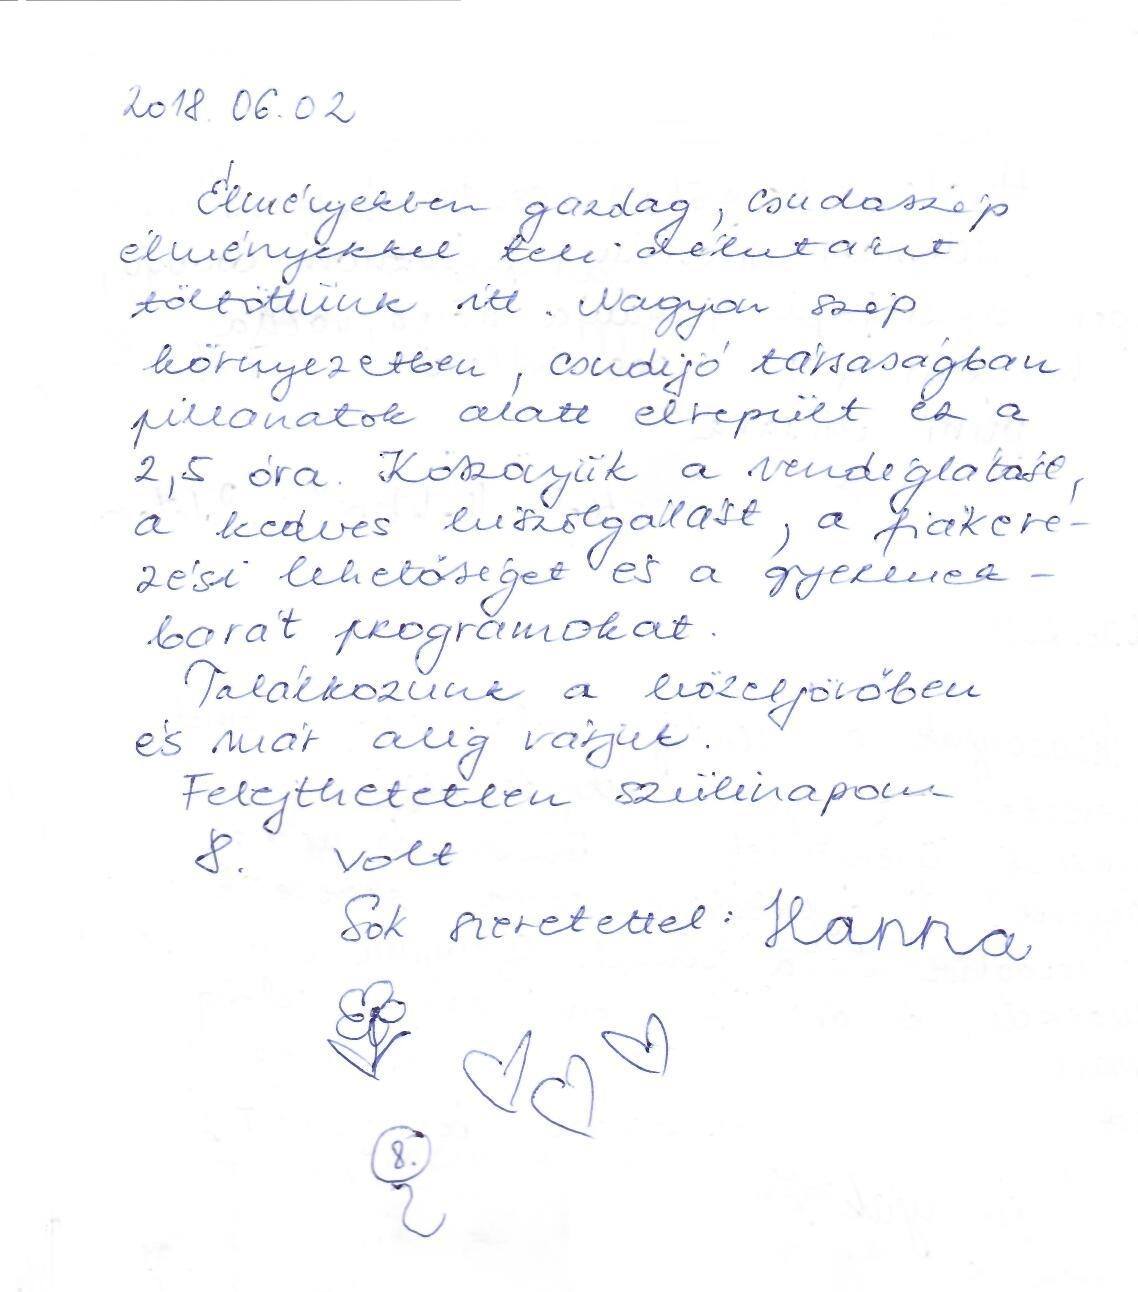 2018. 06. 02
Élményekben gazdag, csudaszép
élményekkel teli délutánt
töltöttünk itt. Nagyon szép
környezetben, csudijó társaságban
pillanatok alatt elrepült ez a
2,5 óra. Köszönjük a vendéglátást,
a kedves kiszolgálást, a fiákere-
zési lehetőséget és a gyermek-
barát programokat.
Találkozunk a közeljövőben
és már alig várjuk.
Felejthetetlen szülinapom
8. volt
Sok szeretettel: Hanna
8.